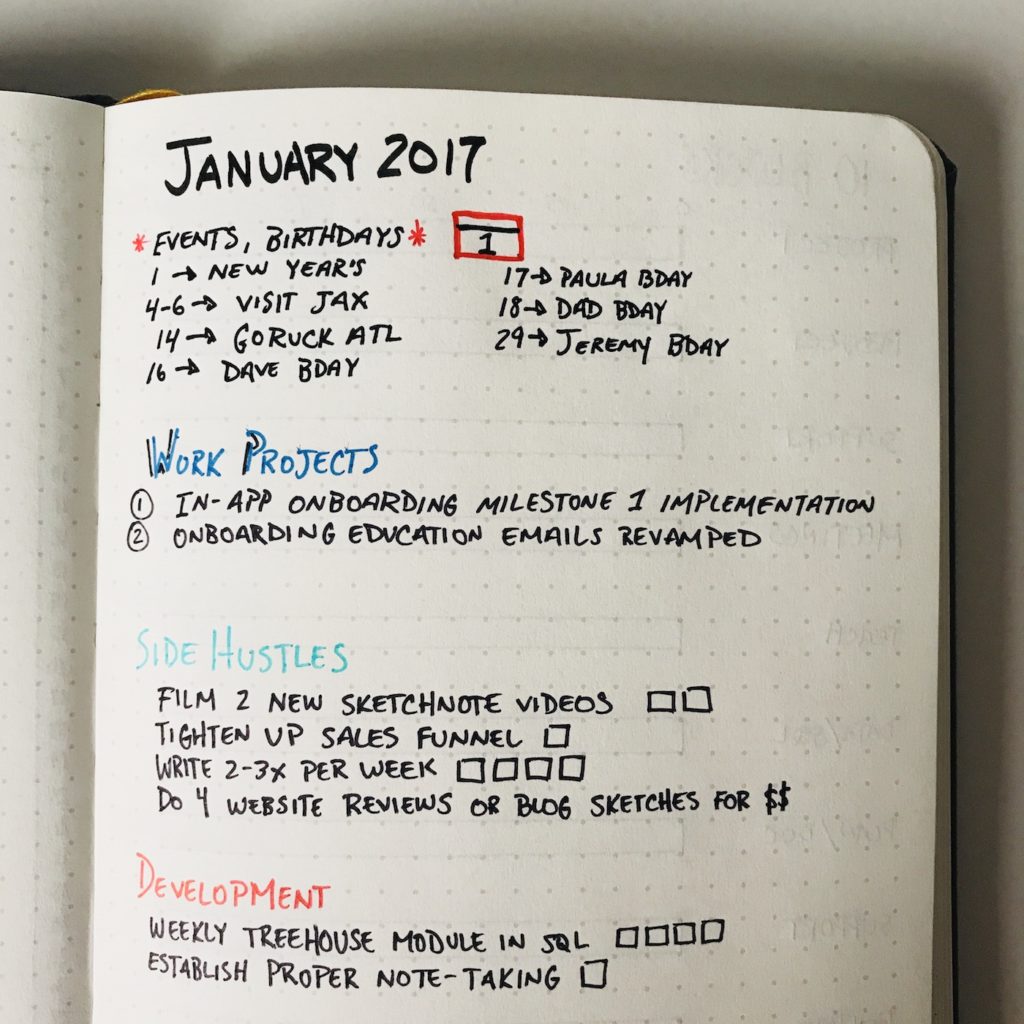 JANUARY 2017
*EVENTS, BIRTHDAYS* 1
1 → NEW YEAR'S
4-6 → VISIT JAX
14 → GORUCK ATL
16 → DAVE BDAY
17 → PAULA BDAY
18 → DAD BDAY
29 → JEREMY BDAY
WORK PROJECTS
① IN-APP ONBOARDING MILESTONE 1 IMPLEMENTATION
② ONBOARDING EDUCATION EMAILS REVAMPED
SIDE HUSTLES
FILM 2 NEW SKETCHNOTE VIDEOS □□
TIGHTEN UP SALES FUNNEL □
WRITE 2-3X PER WEEK □□□□
DO 4 WEBSITE REVIEWS OR BLOG SKETCHES FOR $$
DEVELOPMENT
WEEKLY TREEHOUSE MODULE IN SQL □□□□
ESTABLISH PROPER NOTE-TAKING □